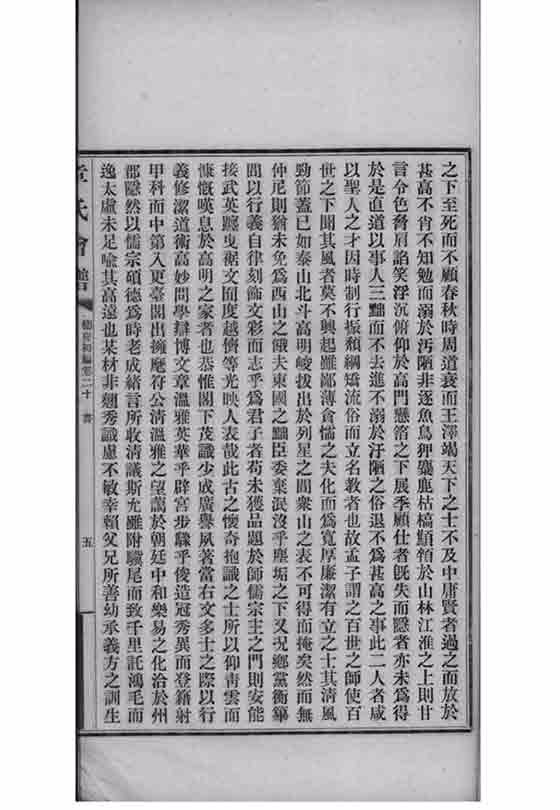 之下至死而不顧春秋時周道衰而王澤竭天下之士不及中庸賢者過之而放於
甚高不肖不知勉而溺於汚陋非逐魚鳥狎麋鹿枯槁顇於山林江淮之上則甘
言令色脅肩諂笑浮沉俯仰於高門懸簿之下展季顧仕者旣失而隱者亦未爲得
於是直道以事人三黜而不去進不溺於汙陋之俗退不爲甚高之事此二人者咸
以聖人之才因時制行振頹綱矯流俗而立名教者也故孟子謂之百世之師使百
世之下聞其風者莫不興起雖鄙薄貪懦之夫化而爲寬厚廉潔有立之士其淸風
勁節蓋已如泰山北斗高明峻拔出於列星之間衆山之表不可得而掩矣然而無
仲尼則猶未免爲西山之餓夫東國之黜臣委棄泯沒乎塵垢之下又況鄕黨衡篳
間以行義自律刻飾文彩而志乎爲君子者苟未獲品題於師儒宗主之門則安能
接武英躔曳裾文囿度越儕等光映人表哉此古之懷奇抱識之士所以仰靑雲而
慷慨嘆息於高明之家者也恭惟閣下茂識少成廣譽夙著當右文多士之際以行
義修潔道術高妙問學辯博文章溫雅英華乎辟宮步驟乎俊造冠秀異而登籍射
甲科而中第入更臺閣出擁麾符公淸溫雅之望藹於朝廷中和樂易之化洽於州
郡隱然以儒宗碩德爲時老成緒言所收淸議斯允雖附驥尾而致千里託鴻毛而
逸太虛未足喩其高遠也某材非翹秀識慮不敏幸賴父兄所善幼承義方之訓生
章氏會譜
德慶初編卷二十 書
五